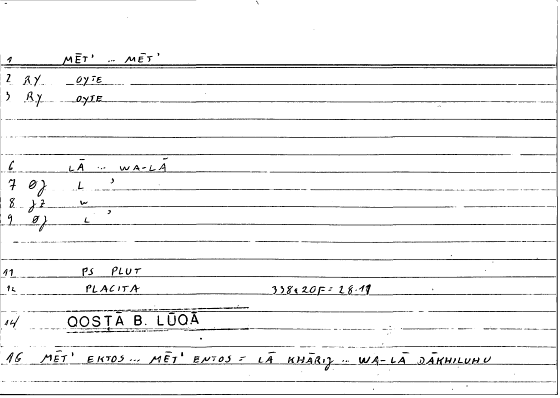 1 MĒT' ... MĒT'
2 RY OYTE
3 RY OYTE
6 LĀ ... WA-LĀ
7 ØJ L '
8 JZ W
9 ØJ L '
11 PS PLUT
12 PLACITA 338A20F = 28.11
14 QOSṬĀ B. LŪQĀ
16 MĒT' EKTOS ... MĒT' ENTOS = LĀ KHĀRIJ ... WA-LĀ DĀKHILUHU